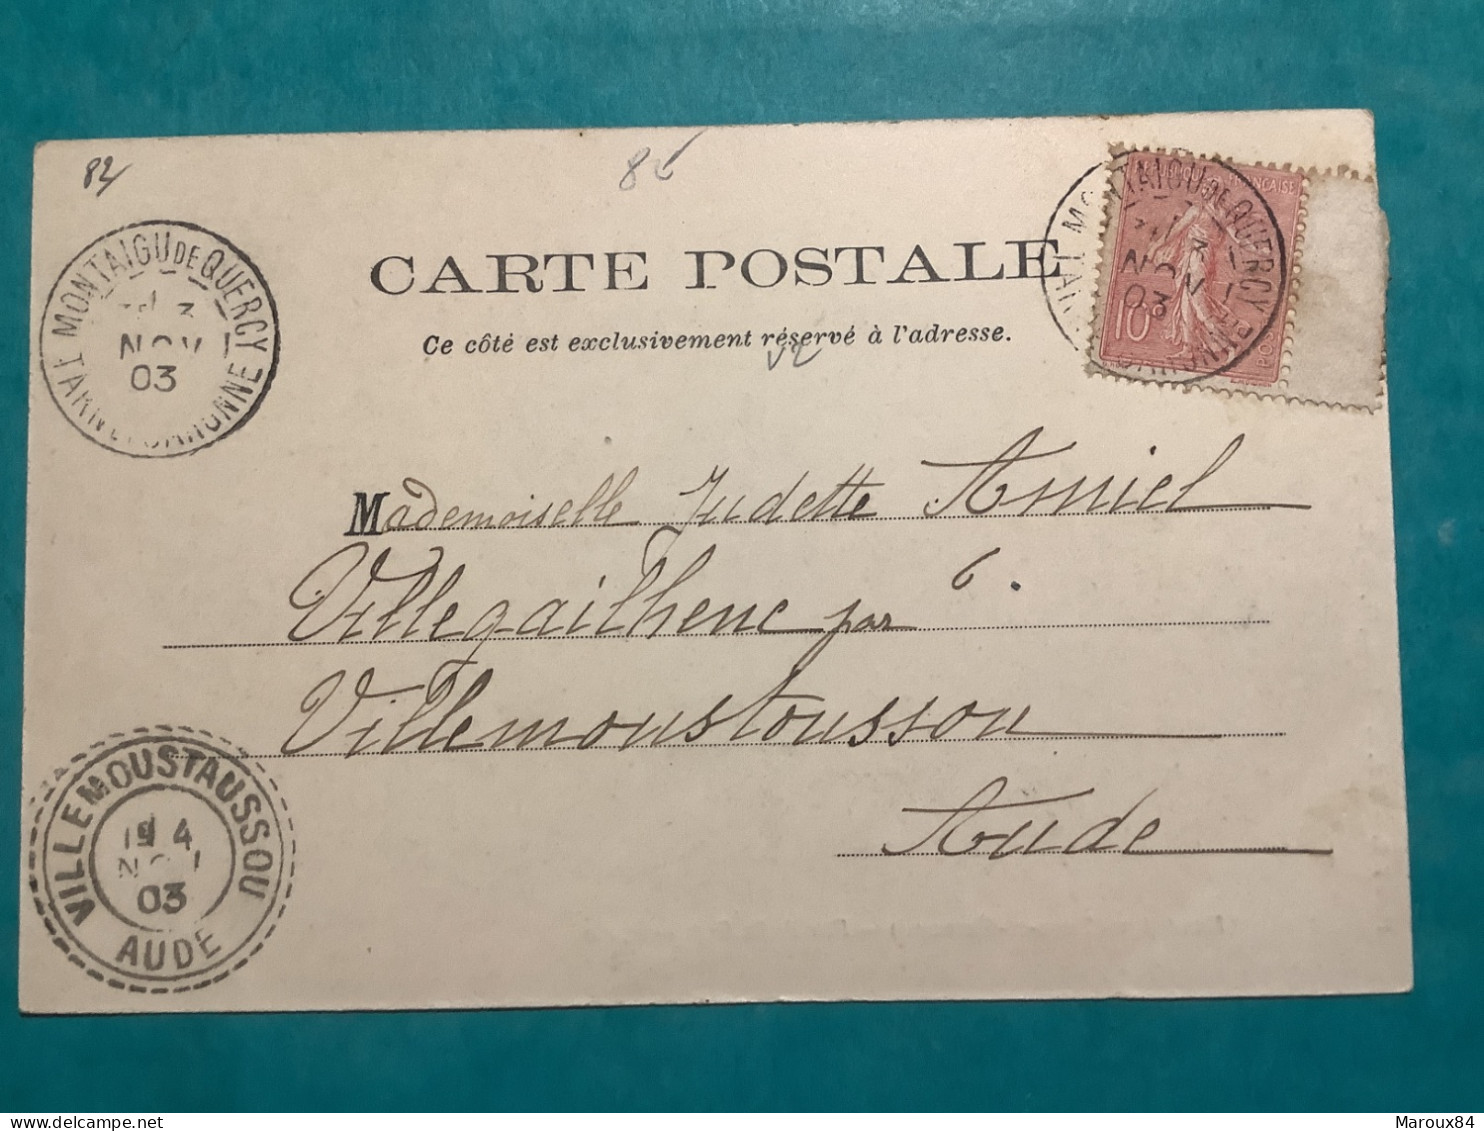 82
86
MONTAIGU DE QUERCY
3
NOV
03
TARN ET GARONNE
RÉPUBLIQUE FRANÇAISE
10
MONTAIGU DE QUERCY
3
NOV
03
CARTE POSTALE
Ce côté est exclusivement réservé à l'adresse.
Mademoiselle Judette Amiel
Villegailhenc par
Villemoustousson
Aude
VILLEMOUSTAUSSOU
19 4
NOV
03
AUDE
Maroux84